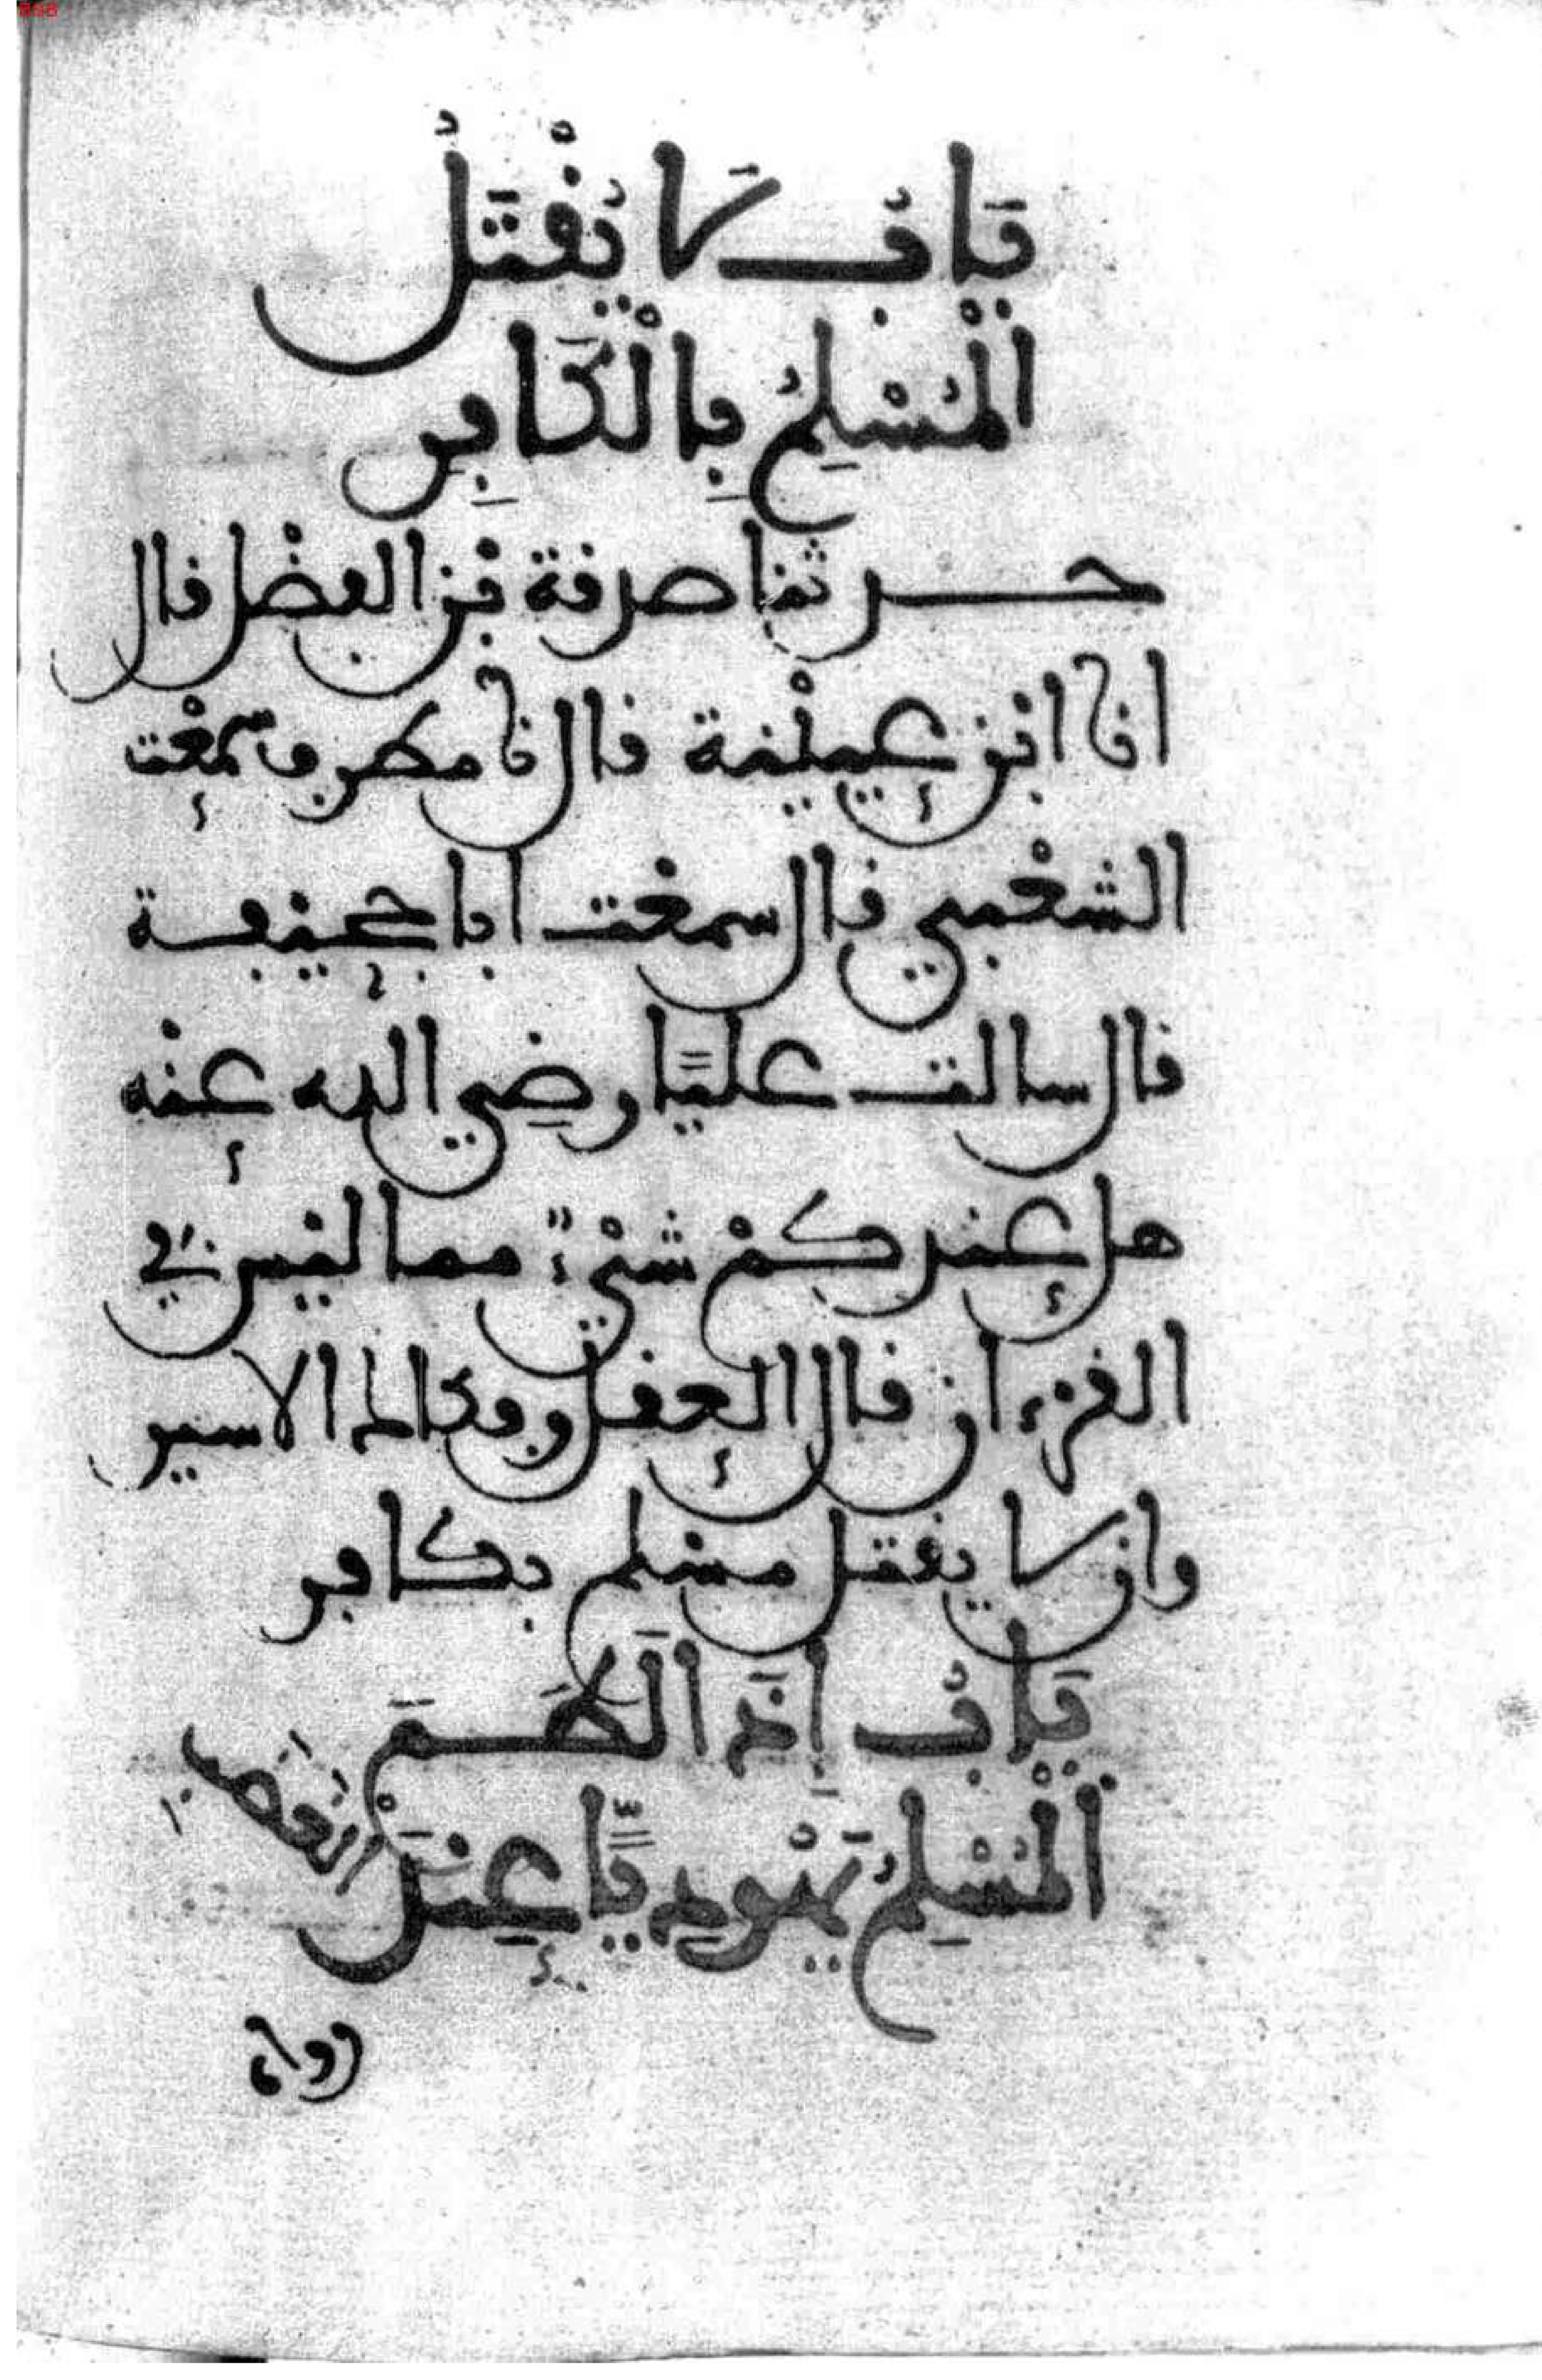 بَابٌ لَا يُقْتَلُ
الْمُسْلِمُ بِالْكَافِرِ
حدثنا صدقة بن الفضل قال
انا ابن عيينة قال نا مطرف سمعت
الشعبي قال سمعت ابا جحيفة
قال سالت عليا رضي الله عنه
هل عندكم شيء مما ليس في
القرءان قال العقل وفكاك الاسير
وان لا يقتل مسلم بكافر
بَابٌ إِذَا لَطَمَ
الْمُسْلِمُ يَهُودِيًّا عِنْدَ الْغَضَبِ
رواه